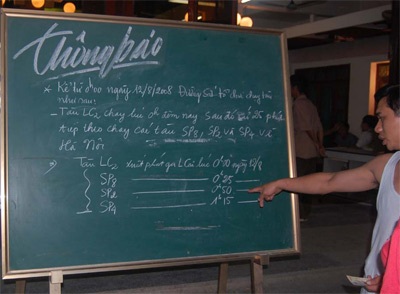 Thông báo
* Kể từ 0h00 ngày 12/8/2008 Đường Sắt tổ chức chạy tàu
như sau:
- Tàu LC2 chạy lúc 0h đêm nay sau đó 25 phút
tiếp theo chạy các tàu SP8, SP2 và SP4 về
Hà Nội
Tàu LC2 xuất phát ga LCai lúc 0h00 ngày 12/8
SP8 0h25
SP2 0h50
SP4 1h15